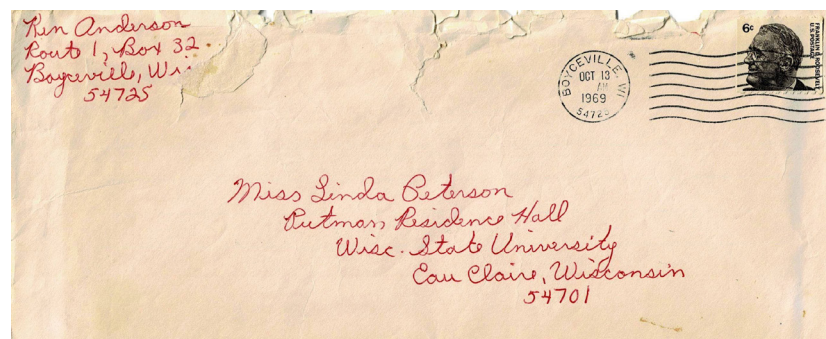 Ken Anderson
Route 1, Box 32
Boyceville, Wi.
54725
BOYCEVILLE, WI
OCT 13
AM
1969
54725
6c
FRANKLIN D. ROOSEVELT
U.S. POSTAGE
Miss Linda Peterson
Putman Residence Hall
Wisc. State University
Eau Claire, Wisconsin
54701